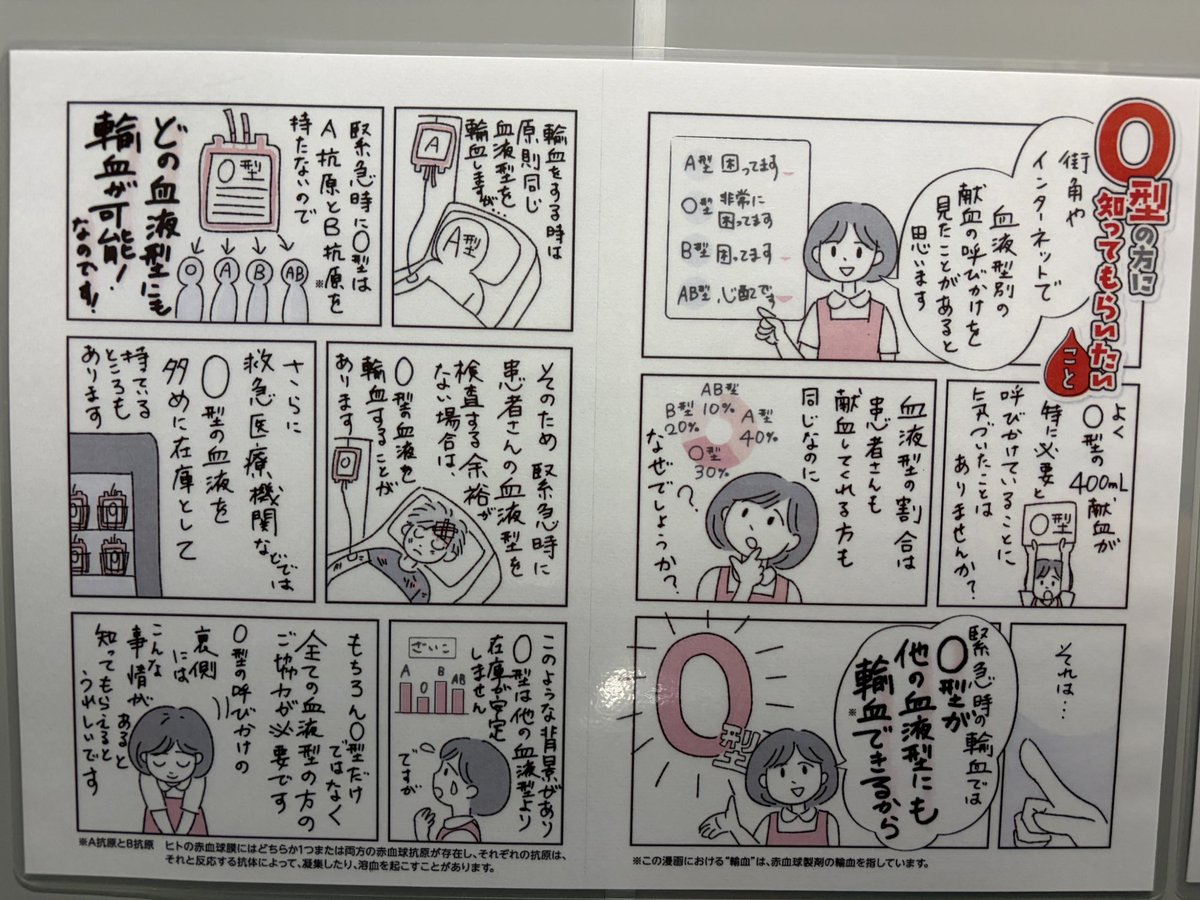 O型の方に
知ってもらいたい
こと
街角や
インターネットで
血液型別の
献血の呼びかけを
見たことがあると
思います
A型 困ってます
O型 非常に
困ってます
B型 困ってます
AB型 心配です
よく
O型の
400mL献血が
特に必要と
呼びかけていることに
気づいたことは
ありませんか?
O型
血液型の割合は
患者さんも
献血してくれる方も
同じなのに
なぜでしょうか?
?
AB型
10%
A型
40%
B型
20%
O型
30%
それは…
緊急時の輸血では
O型が
他の血液型にも
輸血できるから
※
O型
※この漫画における“輸血”は、赤血球製剤の輸血を指しています。
輸血をする時は
原則同じ
血液型を
輸血しますが…
A
A型
緊急時にO型は
A抗原とB抗原を
※
持たないので
O型
O
A
B
AB
どの血液型にも
輸血が可能!
なのです!
そのため 緊急時に
患者さんの血液型を
検査する余裕が
ない場合は、
O型の血液を
輸血することが
あります
O
さらに
救急医療機関などでは
O型の血液を
多めに在庫として
持っている
ところも
あります
このような背景があり
O型は他の血液型より
在庫が安定
しません
ですが
ざいこ
A
O
B
AB
もちろんO型だけ
ではなく
全ての血液型の方の
ご協力が必要です
O型の呼びかけの
裏側
には
こんな
事情が
あると
知ってもらえると
うれしいです
※A抗原とB抗原 ヒトの赤血球膜にはどちらか1つまたは両方の赤血球抗原が存在し、それぞれの抗原は、
それと反応する抗体によって、凝集したり、溶血を起こすことがあります。